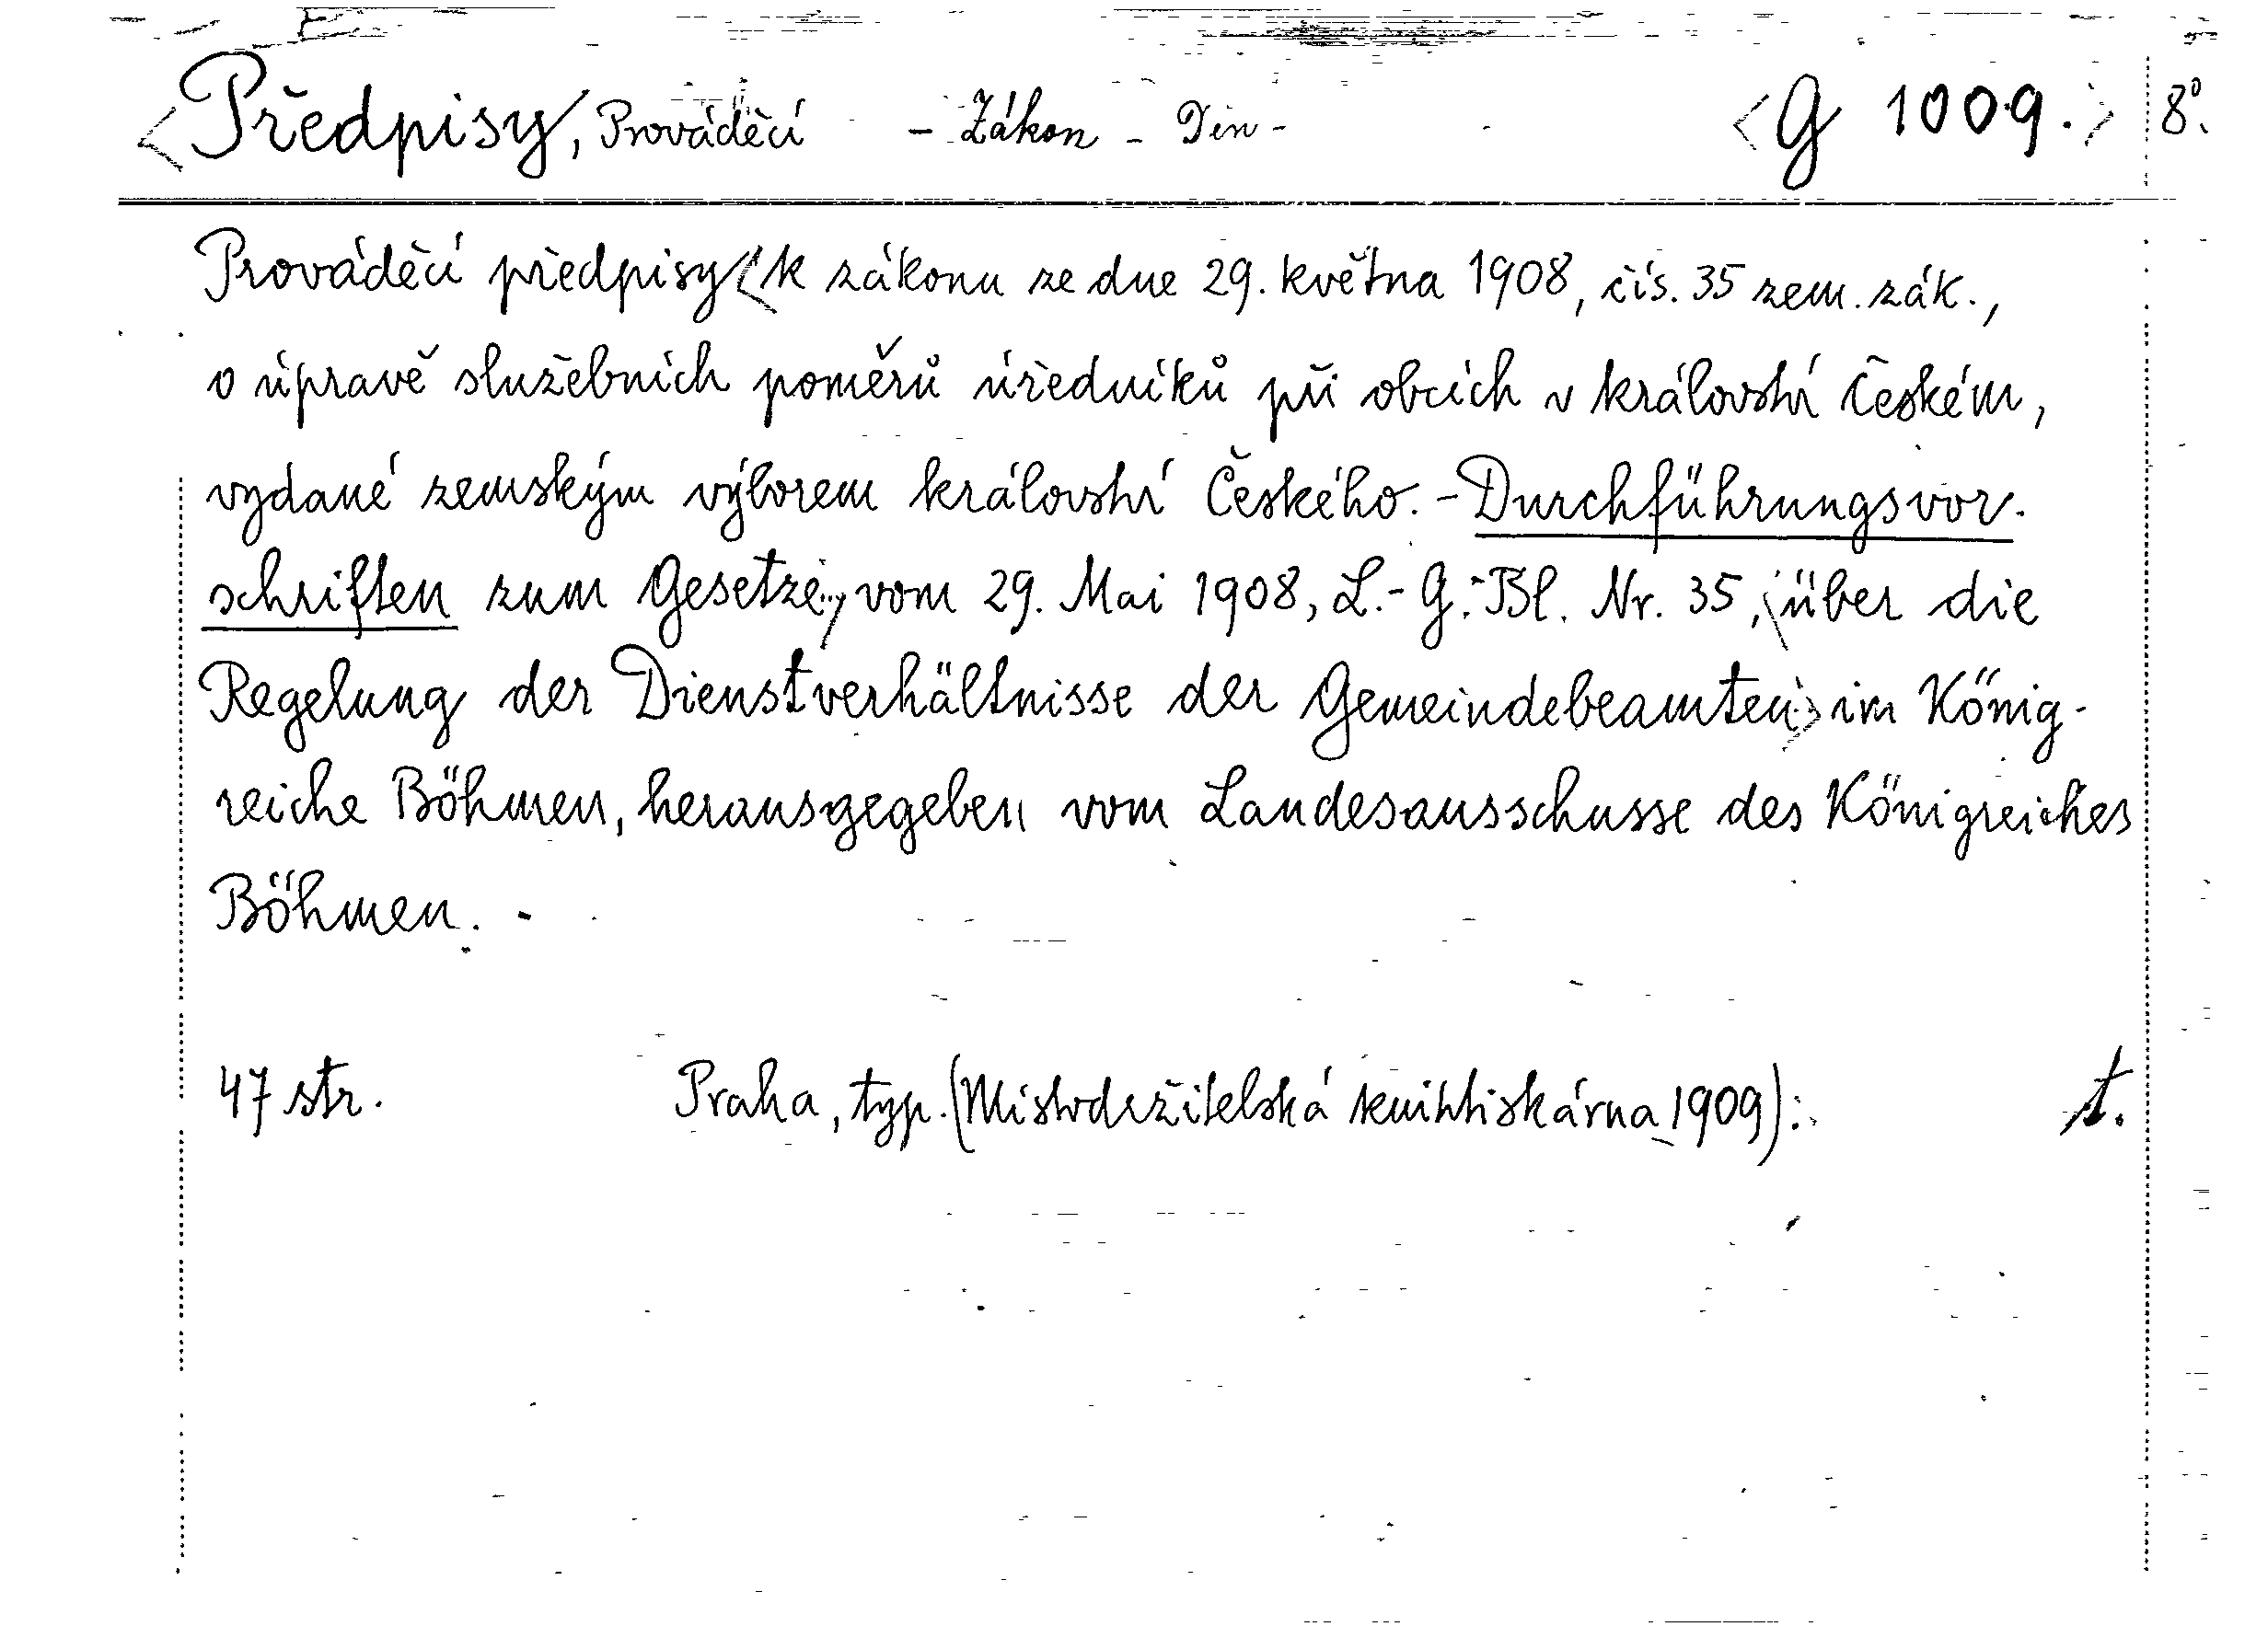 <Předpisy, Prováděcí - Zákon - Din - <G 1009.> 8°.
Prováděcí předpisy <k zákonu ze dne 29. května 1908, čís. 35 zem. zák.,
o úpravě služebních poměrů úředníků při obcích v království Českém,
vydané zemským výborem království Českého. - Durchführungsvor-
schriften zum Gesetze, vom 29. Mai 1908, L.-G.-Bl. Nr. 35, über die
Regelung der Dienstverhältnisse der Gemeindebeamten> im König-
reiche Böhmen, herausgegeben vom Landesausschusse des Königreiches
Böhmen. -
47 str. Praha, typ. (Místodržitelská knihtiskárna 1909). t.